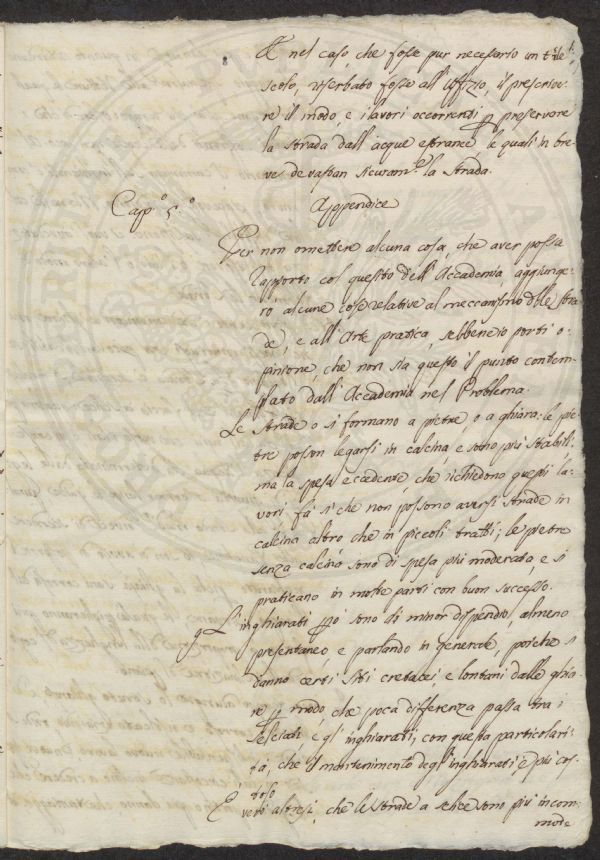 E nel caso, che fosse pur necessario un tal
scolo, riserbato fosse all'Uffizio, il prescrive
re il modo, e i lavori occorrenti p preservare
la strada dall'acque estranee, le quali in bre-
ve devastan sicuram.e la strada.
Cap.o 5.o Appendice
Per non omettere alcuna cosa, che aver possa
rapporto col quesito dell'Accademia, aggiunge-
rò alcune cose relative al meccanismo delle stra
de, e all'Arte pratica, sebbene io porti o-
pinione, che non sia questo il punto contem-
plato dall'Accademia nel Problema.
Le strade o si formano a pietre, o a ghiara: le pie
tre poson legarsi in calcina, e sono più stabili,
ma la spesa eccedente, che richiedono questi la-
vori, fà sì che non possono aversi strade in
calcina altro che in piccoli tratti; le pietre
senza calcina sono di spesa più moderata, e si
praticano in molte parti con buon successo.
g L'inghiarati pò sono di minor dispendio, almeno
presentaneo, e parlando in generale, poiche si
danno certi siti cretacei e lontani dalle ghia
re p modo, che poca differenza passa tra i
selciati e gl'inghiarati; con questa particolari-
tà, che il mantenimento degl'inghiarati, è più cos-
toso
È vero altresì, che le strade a selice sono più incom-
mode